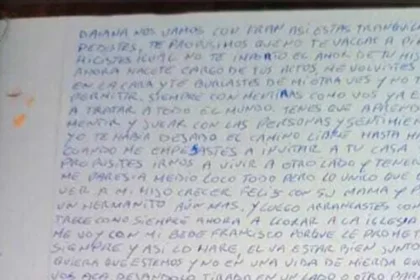 DAIANA NOS VAMOS CON FRAN ASI ESTAS TRANQUILA
PEDISTES, TE PROPUSIMOS QUE NO TE VALLAS A
HICISTES IGUAL NO TE IMPORTO EL AMOR DE TU HIJO
AHORA HACETE CARGO DE TUS ACTOS, ME VOLVISTES
EN LA CARA Y TE BURLASTES DE MI OTRA VES Y NO
PERMITIR, SIEMPRE CON MENTIRAS COMO VOS YA
A TRATAR A TODO EL MUNDO. TENES QUE
MENTIR Y JUGAR CON LAS PERSONAS Y SENTIMIEN
YO TE HABIA DEJADO EL CAMINO LIBRE HASTA
CUANDO ME EMPESASTES A INVITAR A TU CASA
PROPUSISTES IRNOS A VIVIR A OTRO LADO Y TENER
ME PARESIA MEDIO LOCO TODO PERO LO UNICO QUE
VER A MI HIJO CRECER FELIS CON SU MAMA Y
UN HERMANITO AUN MAS. Y LUEGO ARRANCASTES CON
COMO SIEMPRE AHORA A LLORAR A LA IGLESIA
ME VOY CON MI BEBE FRANCISCO PORQUE LE PROMETI
SIEMPRE Y ASI LO HARE, EL VA ESTAR BIEN JUNTO
QUIERA QUE ESTEMOS Y NO EN UNA VIDA DE MIERDA
VOS ACA DEJANDOLO TIRADO EN UN LADO O OTRO